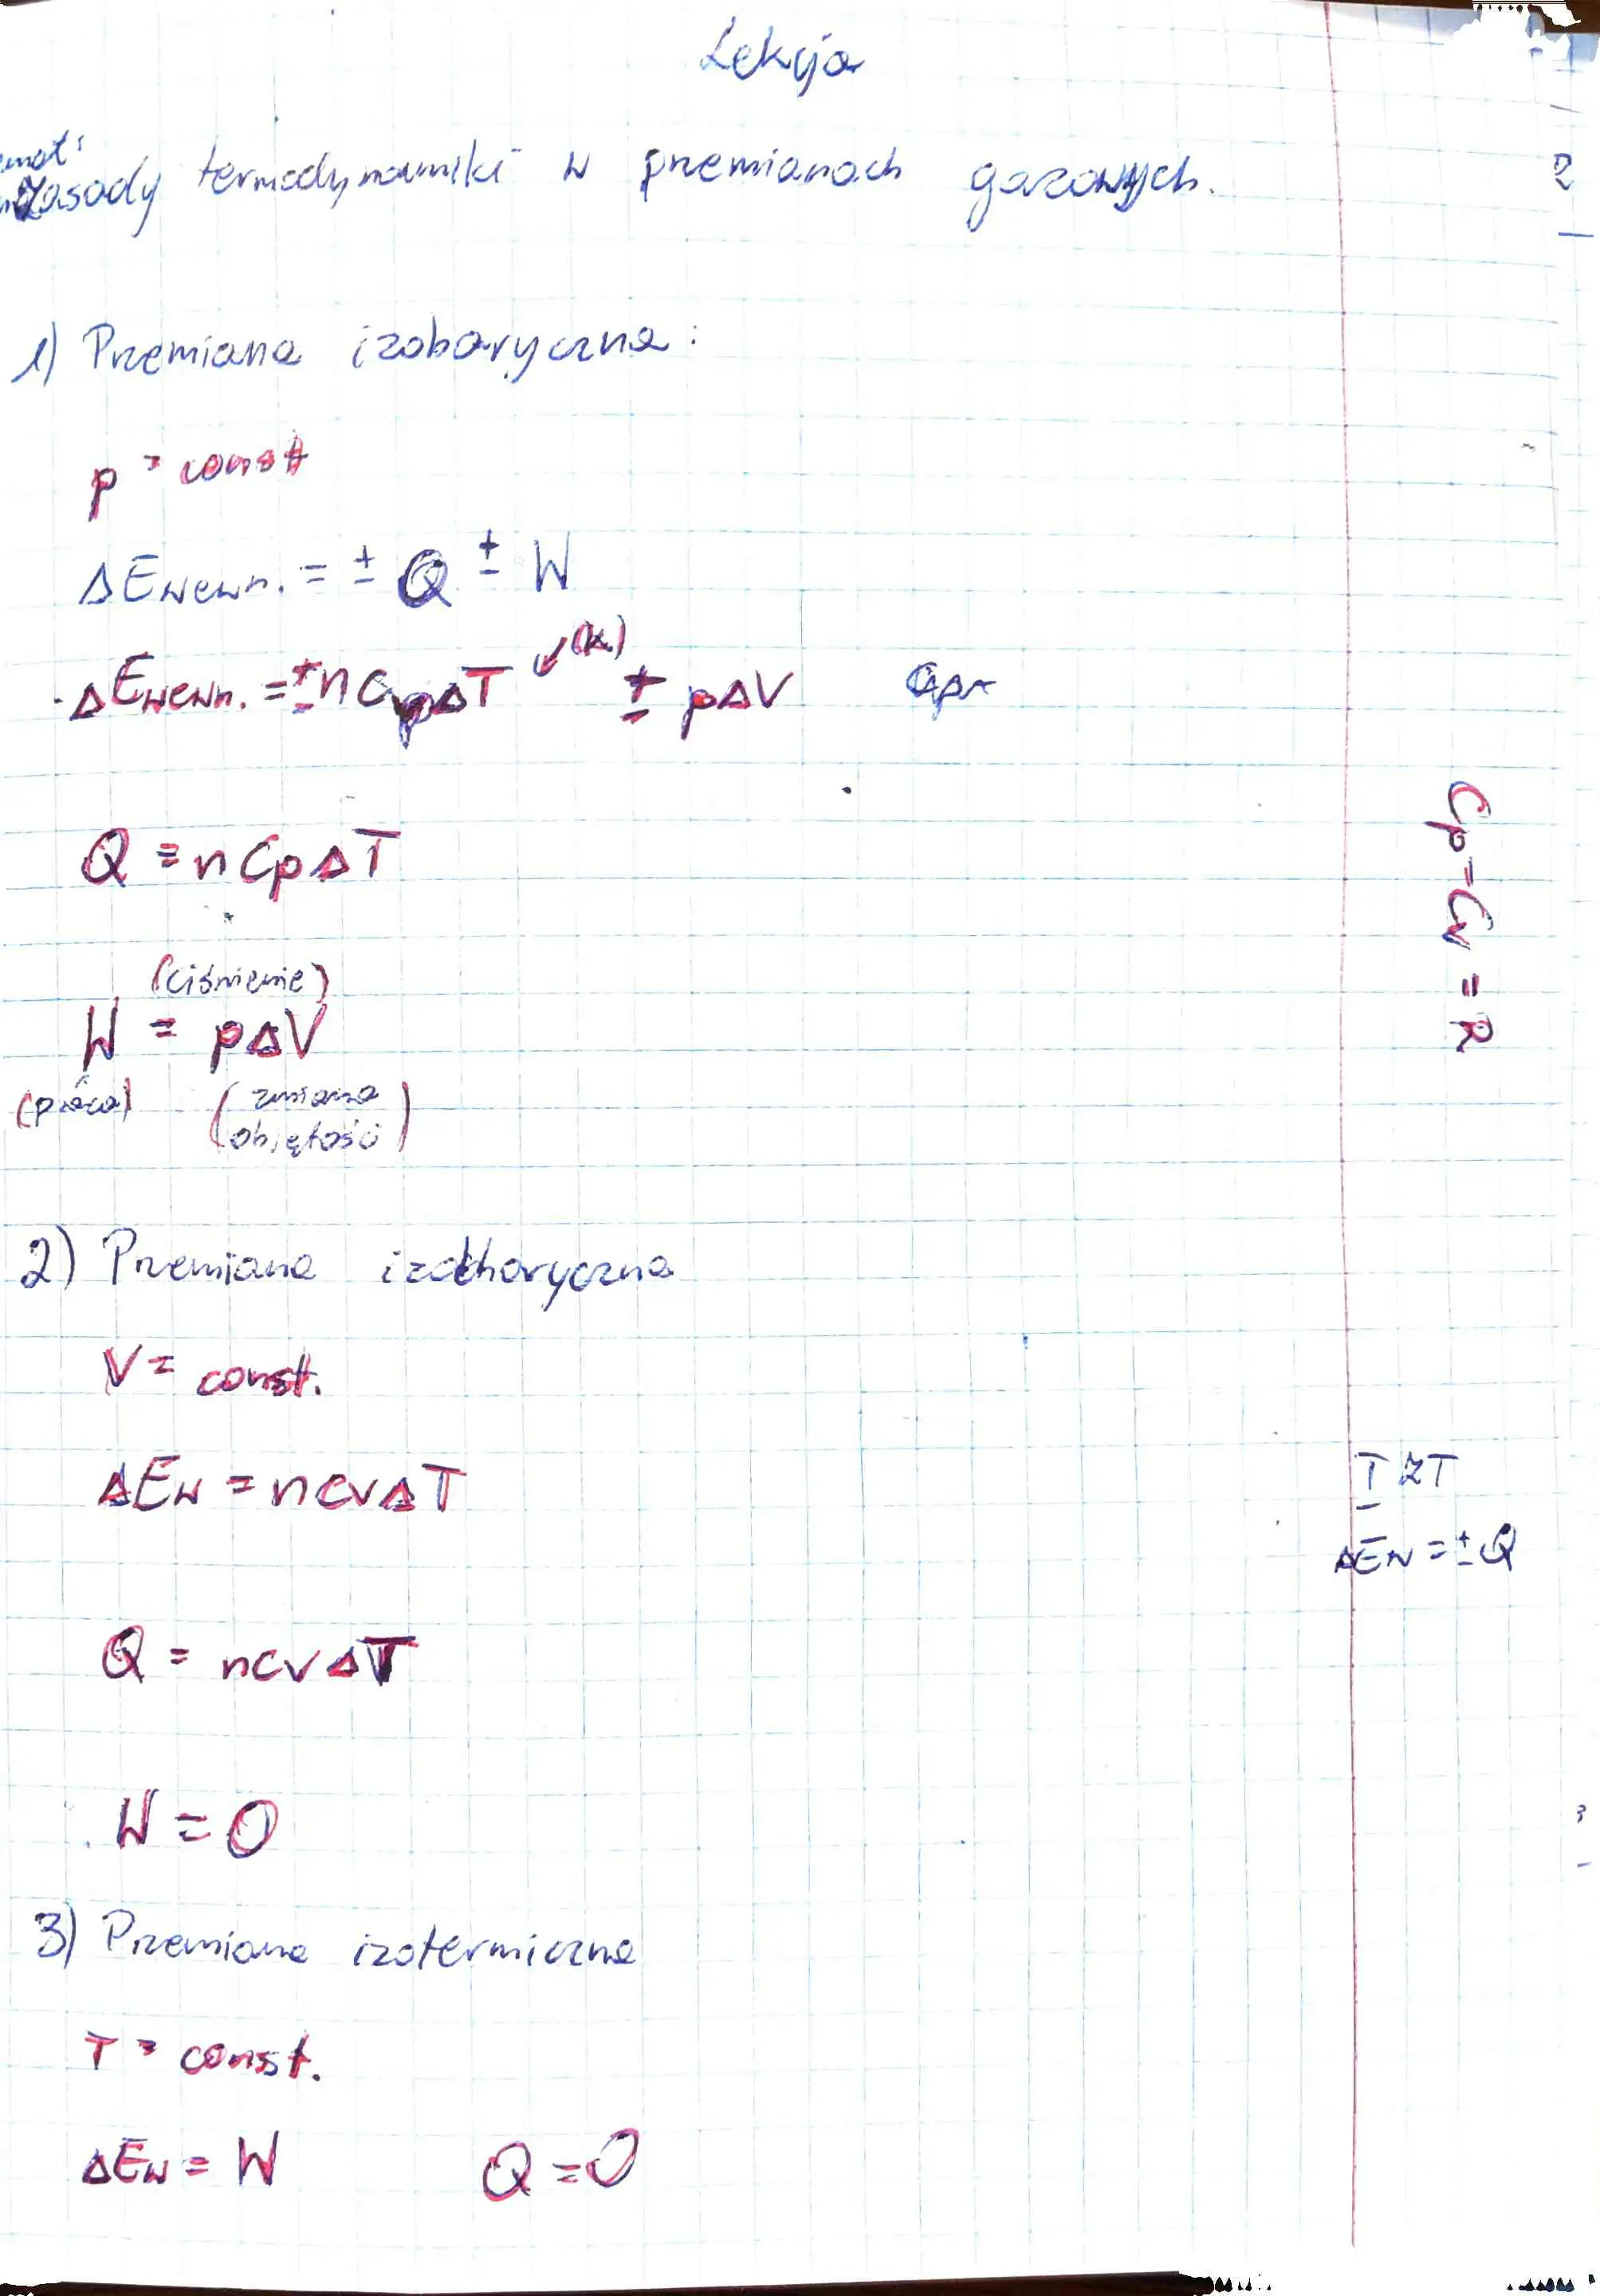 Lekcja
Temat:
Zasady termodynamiki w przemianach gazowych.
1) Przemiana izobaryczna:
p = const
ΔEwewn. = ± Q ± W
ΔEwewn. = ± n Cp ΔT ↙(k) ± pΔV
Q = n Cp ΔT
Cp - Cv = R
(ciśnienie)
W = pΔV
(praca) (zmiana objętości)
2) Przemiana izochoryczna
V = const.
ΔEw = n cv ΔT
I ZT
ΔEw = ± Q
Q = n cv ΔT
W = 0
3) Przemiana izotermiczna
T = const.
ΔEw = W Q = 0